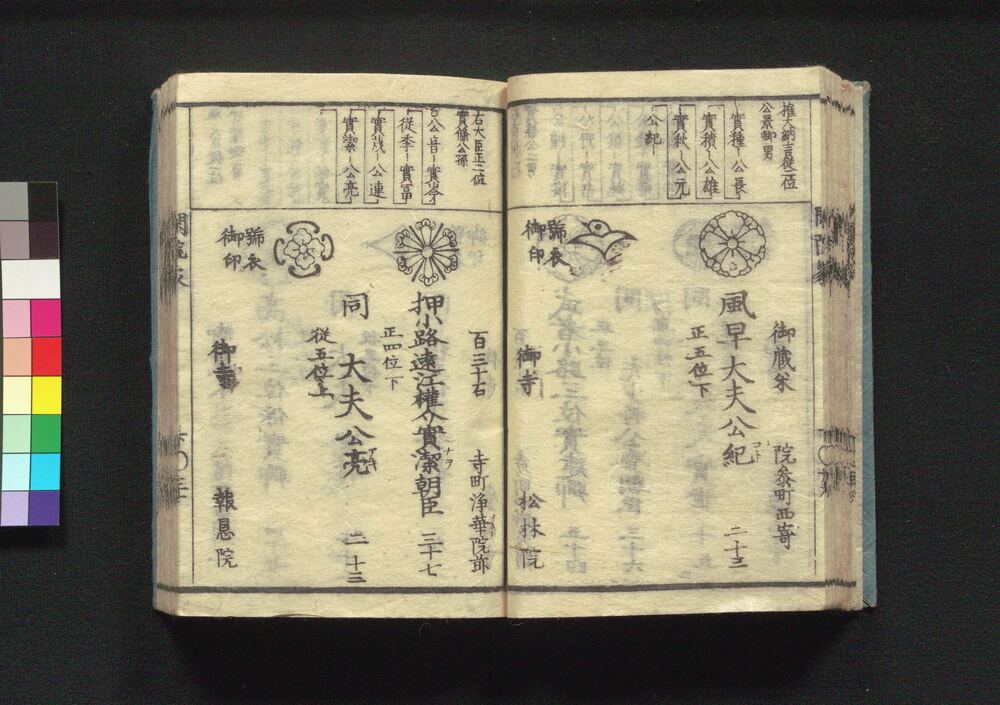 権大納言従二位
公景御男
實種－公長
實積－公雄
實秋－公元
公紀－
御蔵米
院参町西
風早大夫公紀
コト
正五位下
二十三
號衣
御印
御寺
松林院
右大臣正二位
實條公孫
公音－實岑
従季－實富
實茂－公連
實潔－公亮
百三十石
寺町浄華院前
押小路遠江權介實潔朝臣
ナヲ
正四位下
三十七
同
大夫公亮
アキ
従五位上
二十三
號衣
御印
御寺
報恩院
閑院家